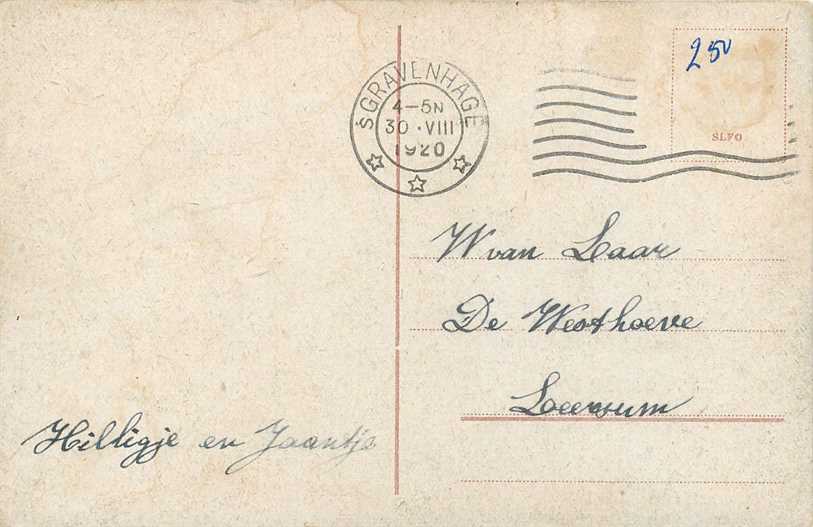 250
'SGRAVENHAGE
4-5N
30·VIII
1920
SLFO
W van Laar
De Westhoeve
Leersum
Hilligje en Jaantje